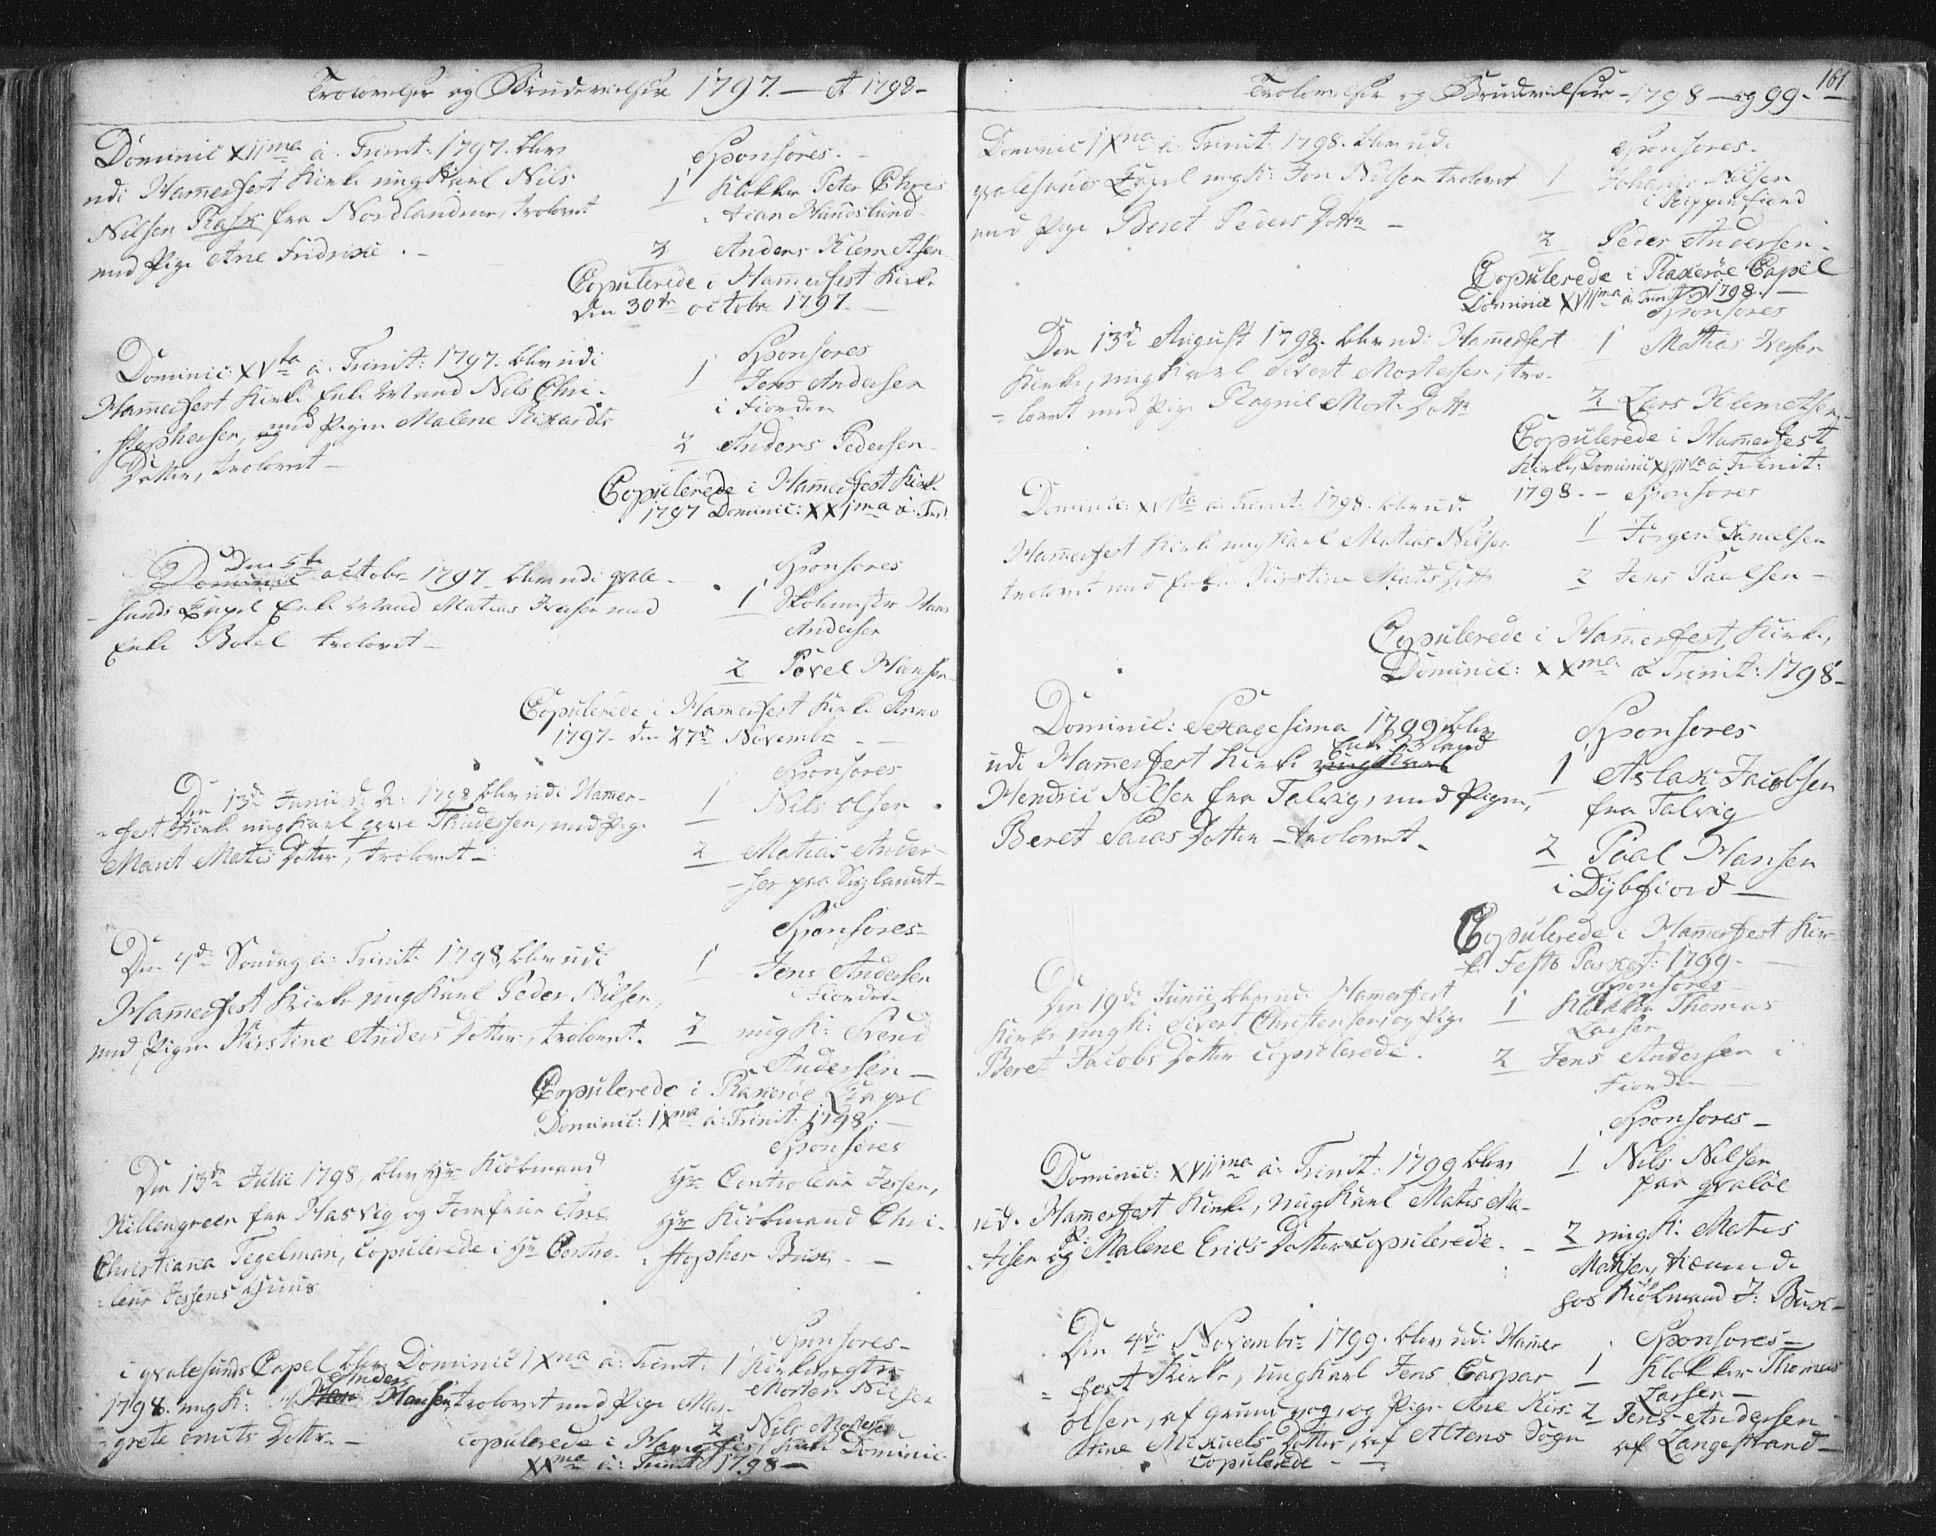 Trolovelser og Brudevielser 1797 — et 1798 –
Dominic XIIma à Trinit: 1797. blev
udi Hamerfest Kirke ungkarl Nils
Nilsen Rask fra Nordlandene, trolovet
med Pige Ane Fridrike . –
Sponsores. –
1 Klokker Peter Chris
tian Hundslund –
2 Anders Klemetsen
Copulerede i Hamerfest Kirke
den 30te octobr 1797. –
Dominic: XVta à Trinit: 1797. blev udi
Hamerfest Kirke Enke Mand Nils Chri-
stophersen, og med Pigen Malene Rikards
Datter, trolovet –
Sponsores
1 Jens Andersen
i Fiorden
2 Anders Pedersen –
Copulerede i Hamerfest Kirke
1797 Dominic: XXIma à Trin.
Den 5te
Dominic octobr 1797 blev udi qvale-
sunds Capel Enke Mand Matias Iversen med
Enke Botel trolovet –
Sponsores
1 Skolemester Hans
Andersen
2 Povel Hansen –
Copulerede i Hamerfest Kirke Anno
1797 – den 27de Novembr – –
Den 13de Junii 1798 blev udi Hamer-
fest Kirke ungkarl Thudessen, med Pige
Marit Matis Datter, trolovet –
Sponsores
1 Nils Olsen
2 Matias Ander-
sen paa
Den 7de Søndag à Trinit: 1798, blev udi
Hamerfest Kirke ungkarl Peder Nilsen,
med Pigen Kirstine Anders Datter, trolovet.
Sponsores –
1 Jens Andersen
i Fiorden
2 ungk: Svend
Andersen –
Copulerede i Raxeröe Capel
Dominic: IXma à Trinit: 1798. –
Den 13de Julii 1798, blev Hr Kiöbmand
Killengreen fra Hasvig og Jomfrue Ane
Christiana Tegelman, copulerede i Hr Contro-
leur Jessens Huus
Sponsores
Hr Controleur Jessen,
Hr Kiöbmand Chri-
stopher Buck. –
i qvalesunds Capel blev Dominic IXna à Trinit:
Anders
1798. ungk: Hansen trolovet med Pige Mar-
grete Datter. –
Sponsores –
1 Kirkevergtr
Morten Nilsen
2 Nils Mortensen
copulerede i Hamerfest Kirke Dominic.
XXma à Trinit 1798 –
Trolovelser og Brudevielser – 1798 – og 99. – 161
Dominic IXna à Trinit: 1798. blev udi
qvalesunds Capel ungk: Jon Nilsen trolovet
med Pige Beret Peders Datter –
Sponsores –
1 Johanes Nilsen
i Reppenfiord
2 Peder Andersen –
Copulerede i Raxeröe Capel
Dominic XVIIma à Trinit: 1798. –
Den 13de August 1798. blev udi Hamerfest
Kirke, ungkarl Sivert Mortensen, tro-
lovet med Pige Ragnil Mort: Datter
Sponsores
1 Matias Iversen
2 Lars Klemetsen –
Copulerede i Hamerfest
Kirke, Dominic à Trinit:
1798. –
Dominic: XVIta à Trinit: 1798. blev udi
Hamerfest Kirke ungkarl Matias Nilsen
trolovet med Enke Kirstine Matis Datter
Sponsores
1 Jörgen Danielsen
2 Jens Paulsen –
Copulerede i Hamerfest Kirke,
Dominic: XXma à Trinit: 1798 –
Dominic: Sexagesima 1799 blev
Enke Mand
udi Hamerfest Kirke ungkarl
Hendric Nilsen fra Talvig, med Pigen,
Beret Saras Datter – trolovet. –
Sponsores
1 Aslak Jacobsen
fra Talvig
2 Paal Hansen
i Dybfiord –
Copulerede i Hamerfest Kir-
ke Festo Pasket: 1799. –
Den 19de Junii blev udi Hamerfest
Kirke ungk: Sivert Christensen, og Pige
Beret Jacobs Datter copulerede.
Sponsores –
1 Klokker Thomas
Larsen
2 Jens Andersen i
Fiorden
Dominic: XVIIma à Trinit: 1799 blev
udi Hamerfest Kirke, ungkarl Matis Ma-
tisen og P: Malene Erics Datter copulerede. –
Sponsores –
1 Nils Nilsen
paa qvalöe
2 ungk: Matis
Matisen, tienende
hos Kiöbmand J: Buck –
Den 4de Novembr 1799. blev udi Hamer
fest Kirke, ungkarl Jens Caspar
Olsen, af og Pige Ane Kir-
stine Mikaels Datter, af Altens Sogn
copulerede – –
Sponsores –
1 Klokker Thomas
Larsen –
2 Jens Andersen
af Langestrand –